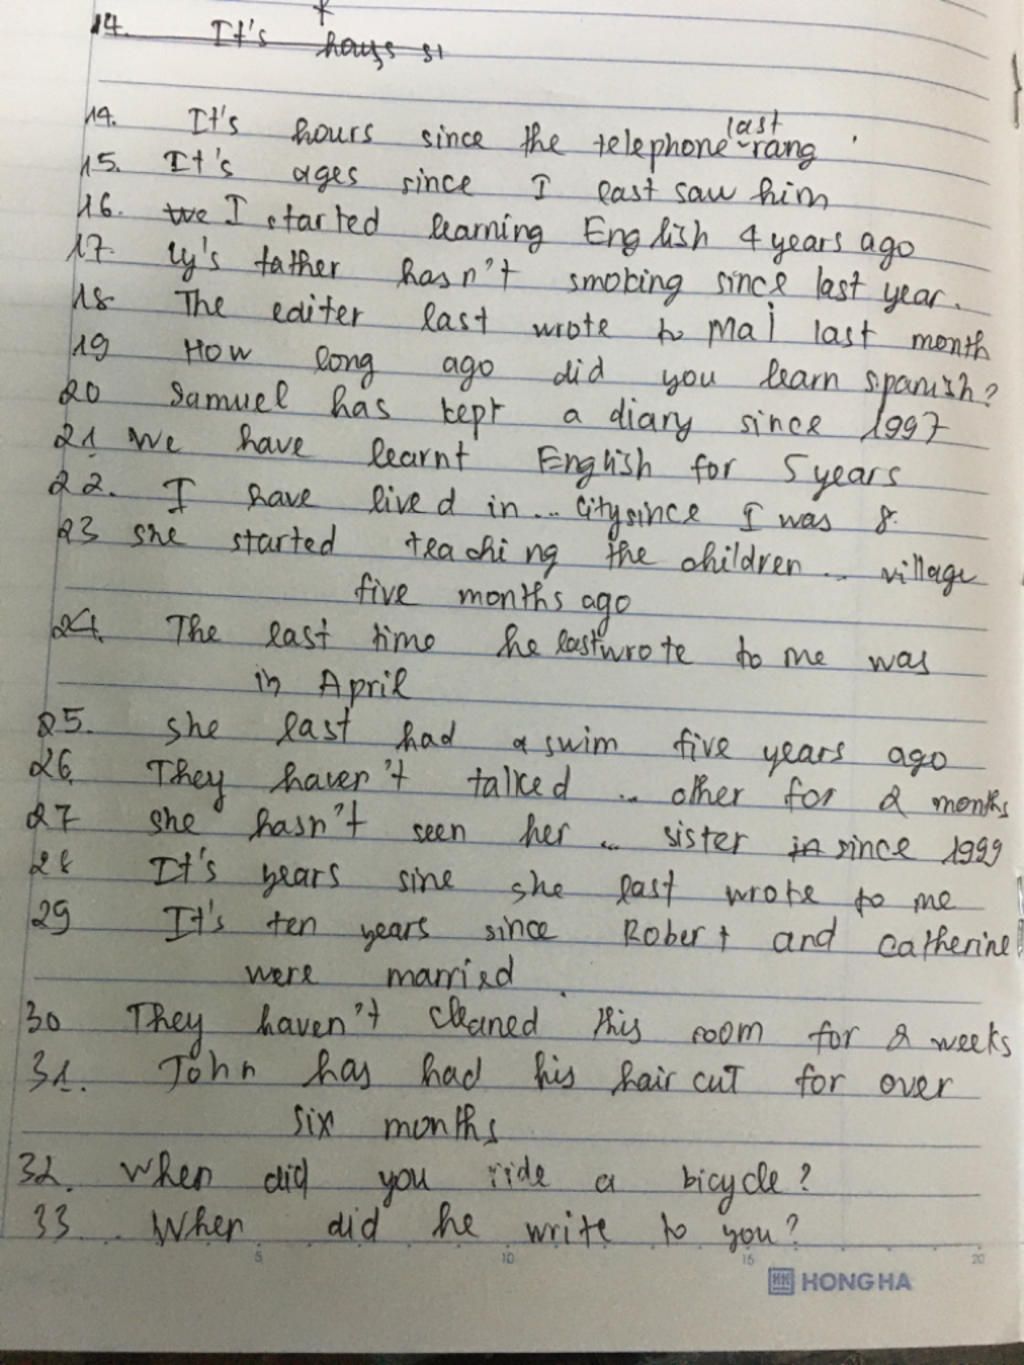 14. It's hours si
14. It's hours since the telephone last rang
15. It's ages since I last saw him
16. we I started learning English 4 years ago
17. Ly's father hasn't smoking since last year.
18 The editer last wrote to Mai last month
19 How long ago did you learn spanish?
20 Samuel has kept a diary since 1997
21 We have learnt English for 5 years
22. I have lived in ... city since I was 8.
23 she started teaching the children ... village
five months ago
24. The last time he last wrote to me was
in April
25. she last had a swim five years ago
26. They haven't talked ... other for 2 months
27 she hasn't seen her ... sister in since 1999
28 It's years sine she last wrote to me
29 It's ten years since Robert and Catherine
were married.
30 They haven't cleaned this room for 2 weeks
31. John has had his hair cut for over
six months
32. When did you ride a bicycle?
33. When did he write to you?
5 10 15 20
HONG HA